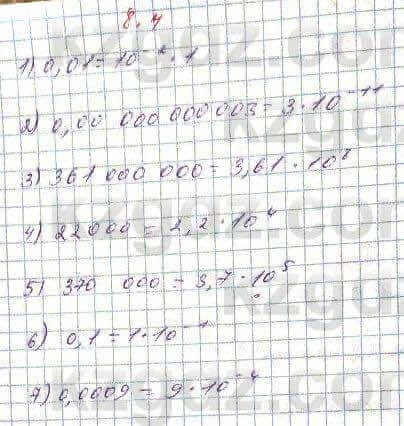 8.4
1) 0,01 = 10⁻² · 1
2) 0,00 000 000 003 = 3 · 10⁻¹¹
3) 361 000 000 = 3,61 · 10⁸
4) 22000 = 2,2 · 10⁴
5) 370 000 = 3,7 · 10⁵
6) 0,1 = 1 · 10⁻¹
7) 0,0009 = 9 · 10⁻⁴